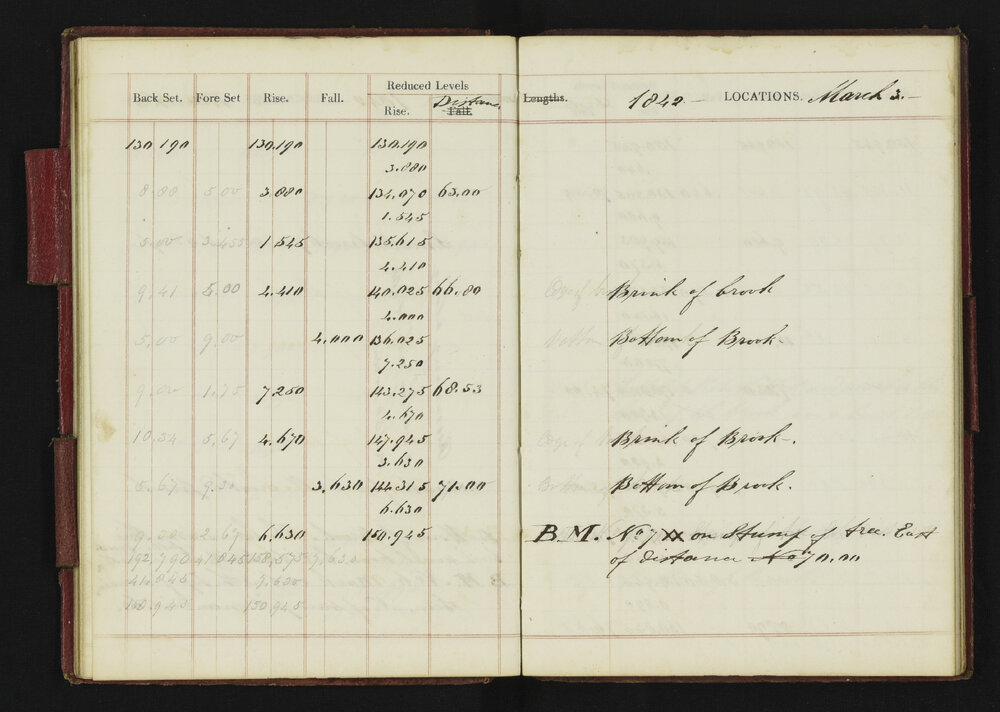 Reduced Levels
Back Set. Fore Set Rise. Fall. Rise. Distance. Fall. Lengths. 1842 – LOCATIONS. March 3. –
130 190 130.190 130.190
3.880
8.88 5.00 3.880 134.070 63.00
1.545
5.00 3.455 1.545 135.615
4.410
9.41 5.00 4.410 140.025 66.80 Brink of brook
4.000
5.00 9.00 4.000 136.025 Bottom of Brook
7.250
9.00 1.75 7.250 143.275 68.53
4.670
10.34 5.67 4.670 147.945 Brink of Brook.
3.630
5.67 9.30 3.630 144.315 71.00 Bottom of Brook.
6.630
9.30 2.67 6.630 150.945 B.M. No 7 on Stump of tree. East
192,790 41 845 158,575 7,630 of distance No 70.00
41.845 9.630
150.945 150.945